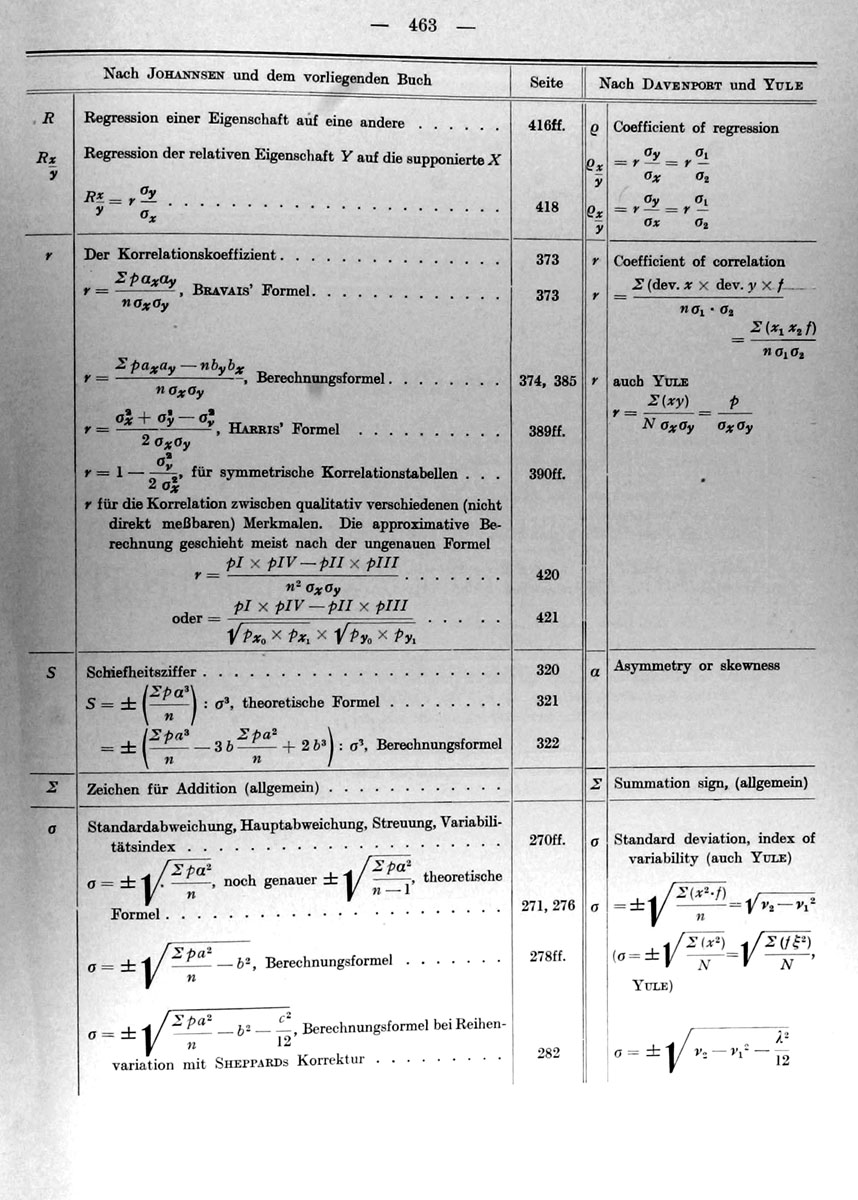 — 463 —
Nach JOHANNSEN und dem vorliegenden Buch | Seite | Nach DAVENPORT und YULE
R | Regression einer Eigenschaft auf eine andere . . . . . . | 416ff. | ϱ | Coefficient of regression
R x/y | Regression der relativen Eigenschaft Y auf die supponierte X | | ϱ x/y | = r σy/σx = r σ₁/σ₂
R x/y = r σy/σx . . . . . . . . . . . . . . . . . . . . . | 418 | ϱ x/y | = r σy/σx = r σ₁/σ₂
r | Der Korrelationskoeffizient . . . . . . . . . . . . . . | 373 | r | Coefficient of correlation
r = Σpaₓa_y / nσₓσ_y, BRAVAIS' Formel . . . . . . . . . . . . | 373 | r | = Σ(dev. x × dev. y × f / nσ₁ · σ₂
= Σ(x₁ x₂ f) / nσ₁σ₂
r = (Σpaₓa_y — nb_ybₓ) / nσₓσ_y, Berechnungsformel . . . . . . . . | 374, 385 | r | auch YULE
r = Σ(xy) / N σₓσ_y = p / σₓσ_y
r = (σ²ₓ + σ²_y — σ²_v) / 2 σₓσ_y, HARRIS' Formel . . . . . . . . . . | 389ff.
r = 1 — σ²_v / 2 σ²ₓ, für symmetrische Korrelationstabellen . . . | 390ff.
r für die Korrelation zwischen qualitativ verschiedenen (nicht
direkt meßbaren) Merkmalen. Die approximative Be-
rechnung geschieht meist nach der ungenauen Formel
r = (pI × pIV — pII × pIII) / n² σₓσ_y . . . . . . . | 420
oder = (pI × pIV — pII × pIII) / (√pₓ₀ × pₓ₁ × √p_y₀ × p_y₁) . . . . . | 421
S | Schiefheitsziffer . . . . . . . . . . . . . . . . . . . | 320 | α | Asymmetry or skewness
S = ± (Σpa³/n) : σ³, theoretische Formel . . . . . . . . | 321
= ± (Σpa³/n — 3 b Σpa²/n + 2 b³) : σ³, Berechnungsformel | 322
Σ | Zeichen für Addition (allgemein) . . . . . . . . . . . | | Σ | Summation sign, (allgemein)
σ | Standardabweichung, Hauptabweichung, Streuung, Variabili-
tätsindex . . . . . . . . . . . . . . . . . . . . | 270ff. | σ | Standard deviation, index of
variability (auch YULE)
σ = ± √(Σpa²/n), noch genauer ± √(Σpa²/(n — 1)), theoretische
Formel . . . . . . . . . . . . . . . . . . . . . | 271, 276 | σ | = ± √(Σ(x²·f)/n) = √(ν₂ — ν₁²)
σ = ± √(Σpa²/n — b²), Berechnungsformel . . . . . . . | 278ff. | (σ = ± √(Σ(x²)/N) = √(Σ(f ξ²)/N),
YULE)
σ = ± √(Σpa²/n — b² — c²/12), Berechnungsformel bei Reihen-
variation mit SHEPPARDS Korrektur . . . . . . . . . | 282 | σ = ± √(ν₂ — ν₁² — λ²/12)